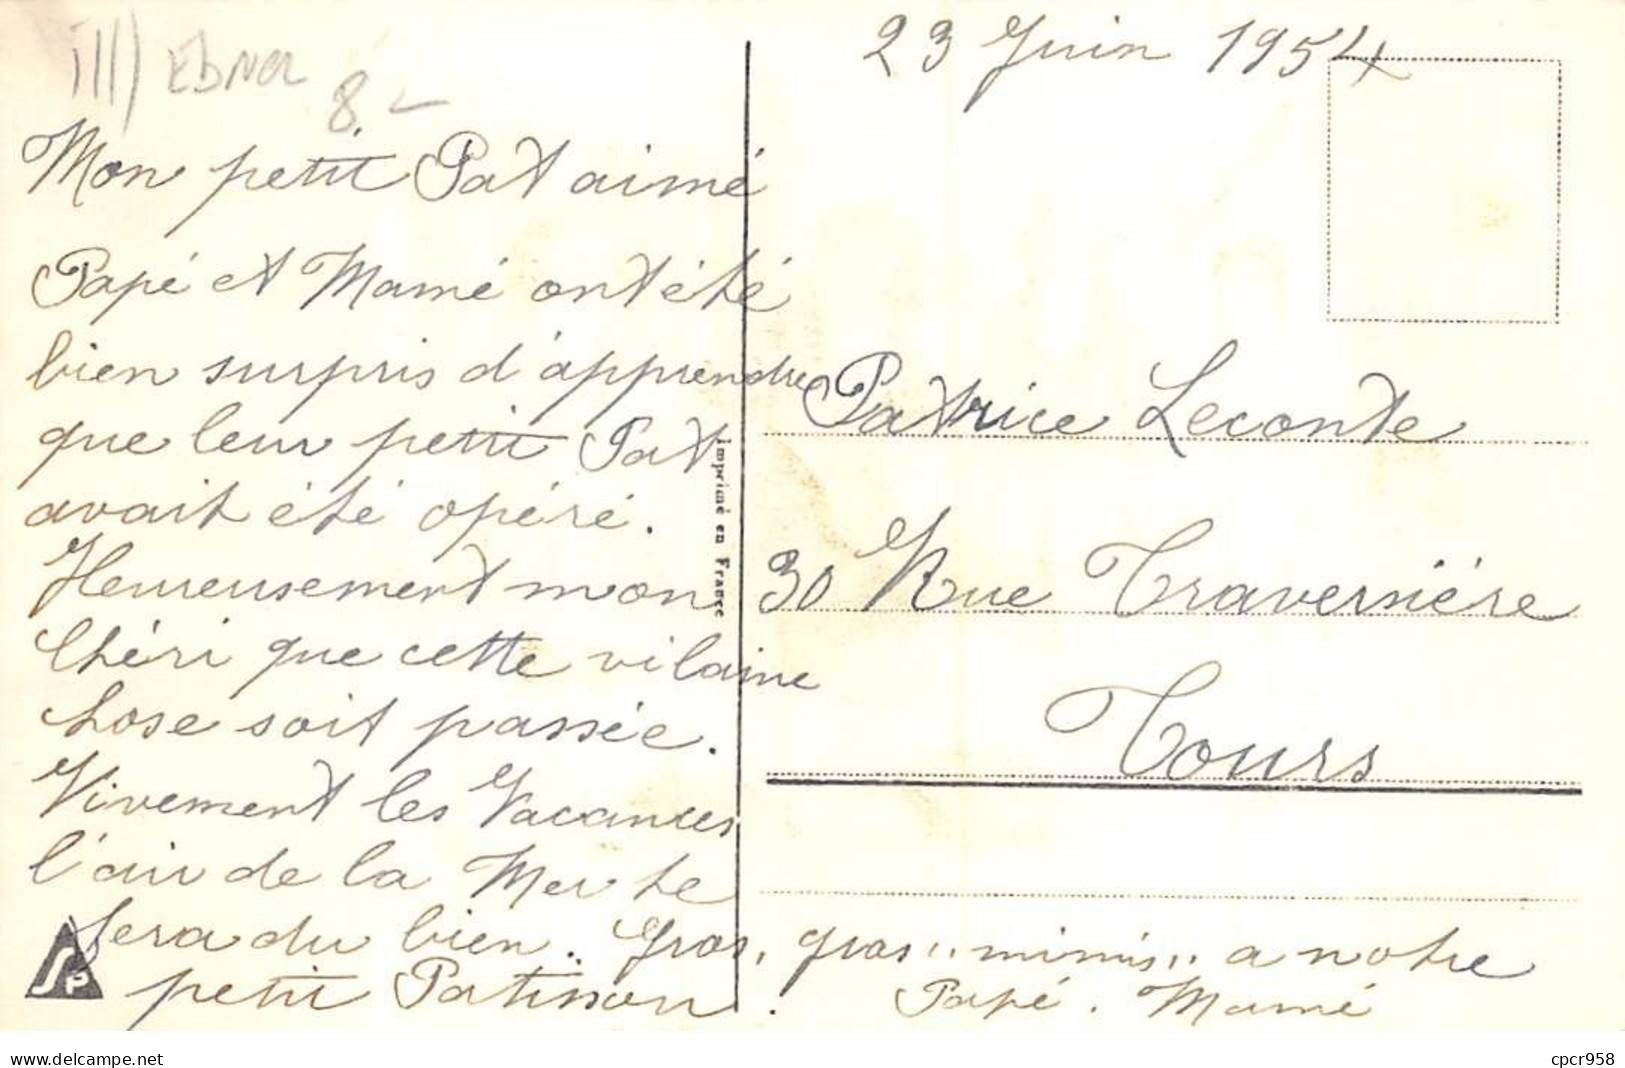 ill) Ebner
8 -
23 Juin 1954
Mon petit Pat aimé
Papé et Mamé ont été
bien surpris d'apprendre
que leur petit Pat
avait été opéré.
Heureusement mon
Chéri que cette vilaine
chose soit passée.
Vivement les Vacances
l'air de la Mer te
fera du bien. Gros, gros " mimis " a notre
petit Patisson.
Papé. Mamé
Imprimé en France
Patrice Leconte
30 Rue Traversière
Tours
SP
delcampe.net
cpcr958